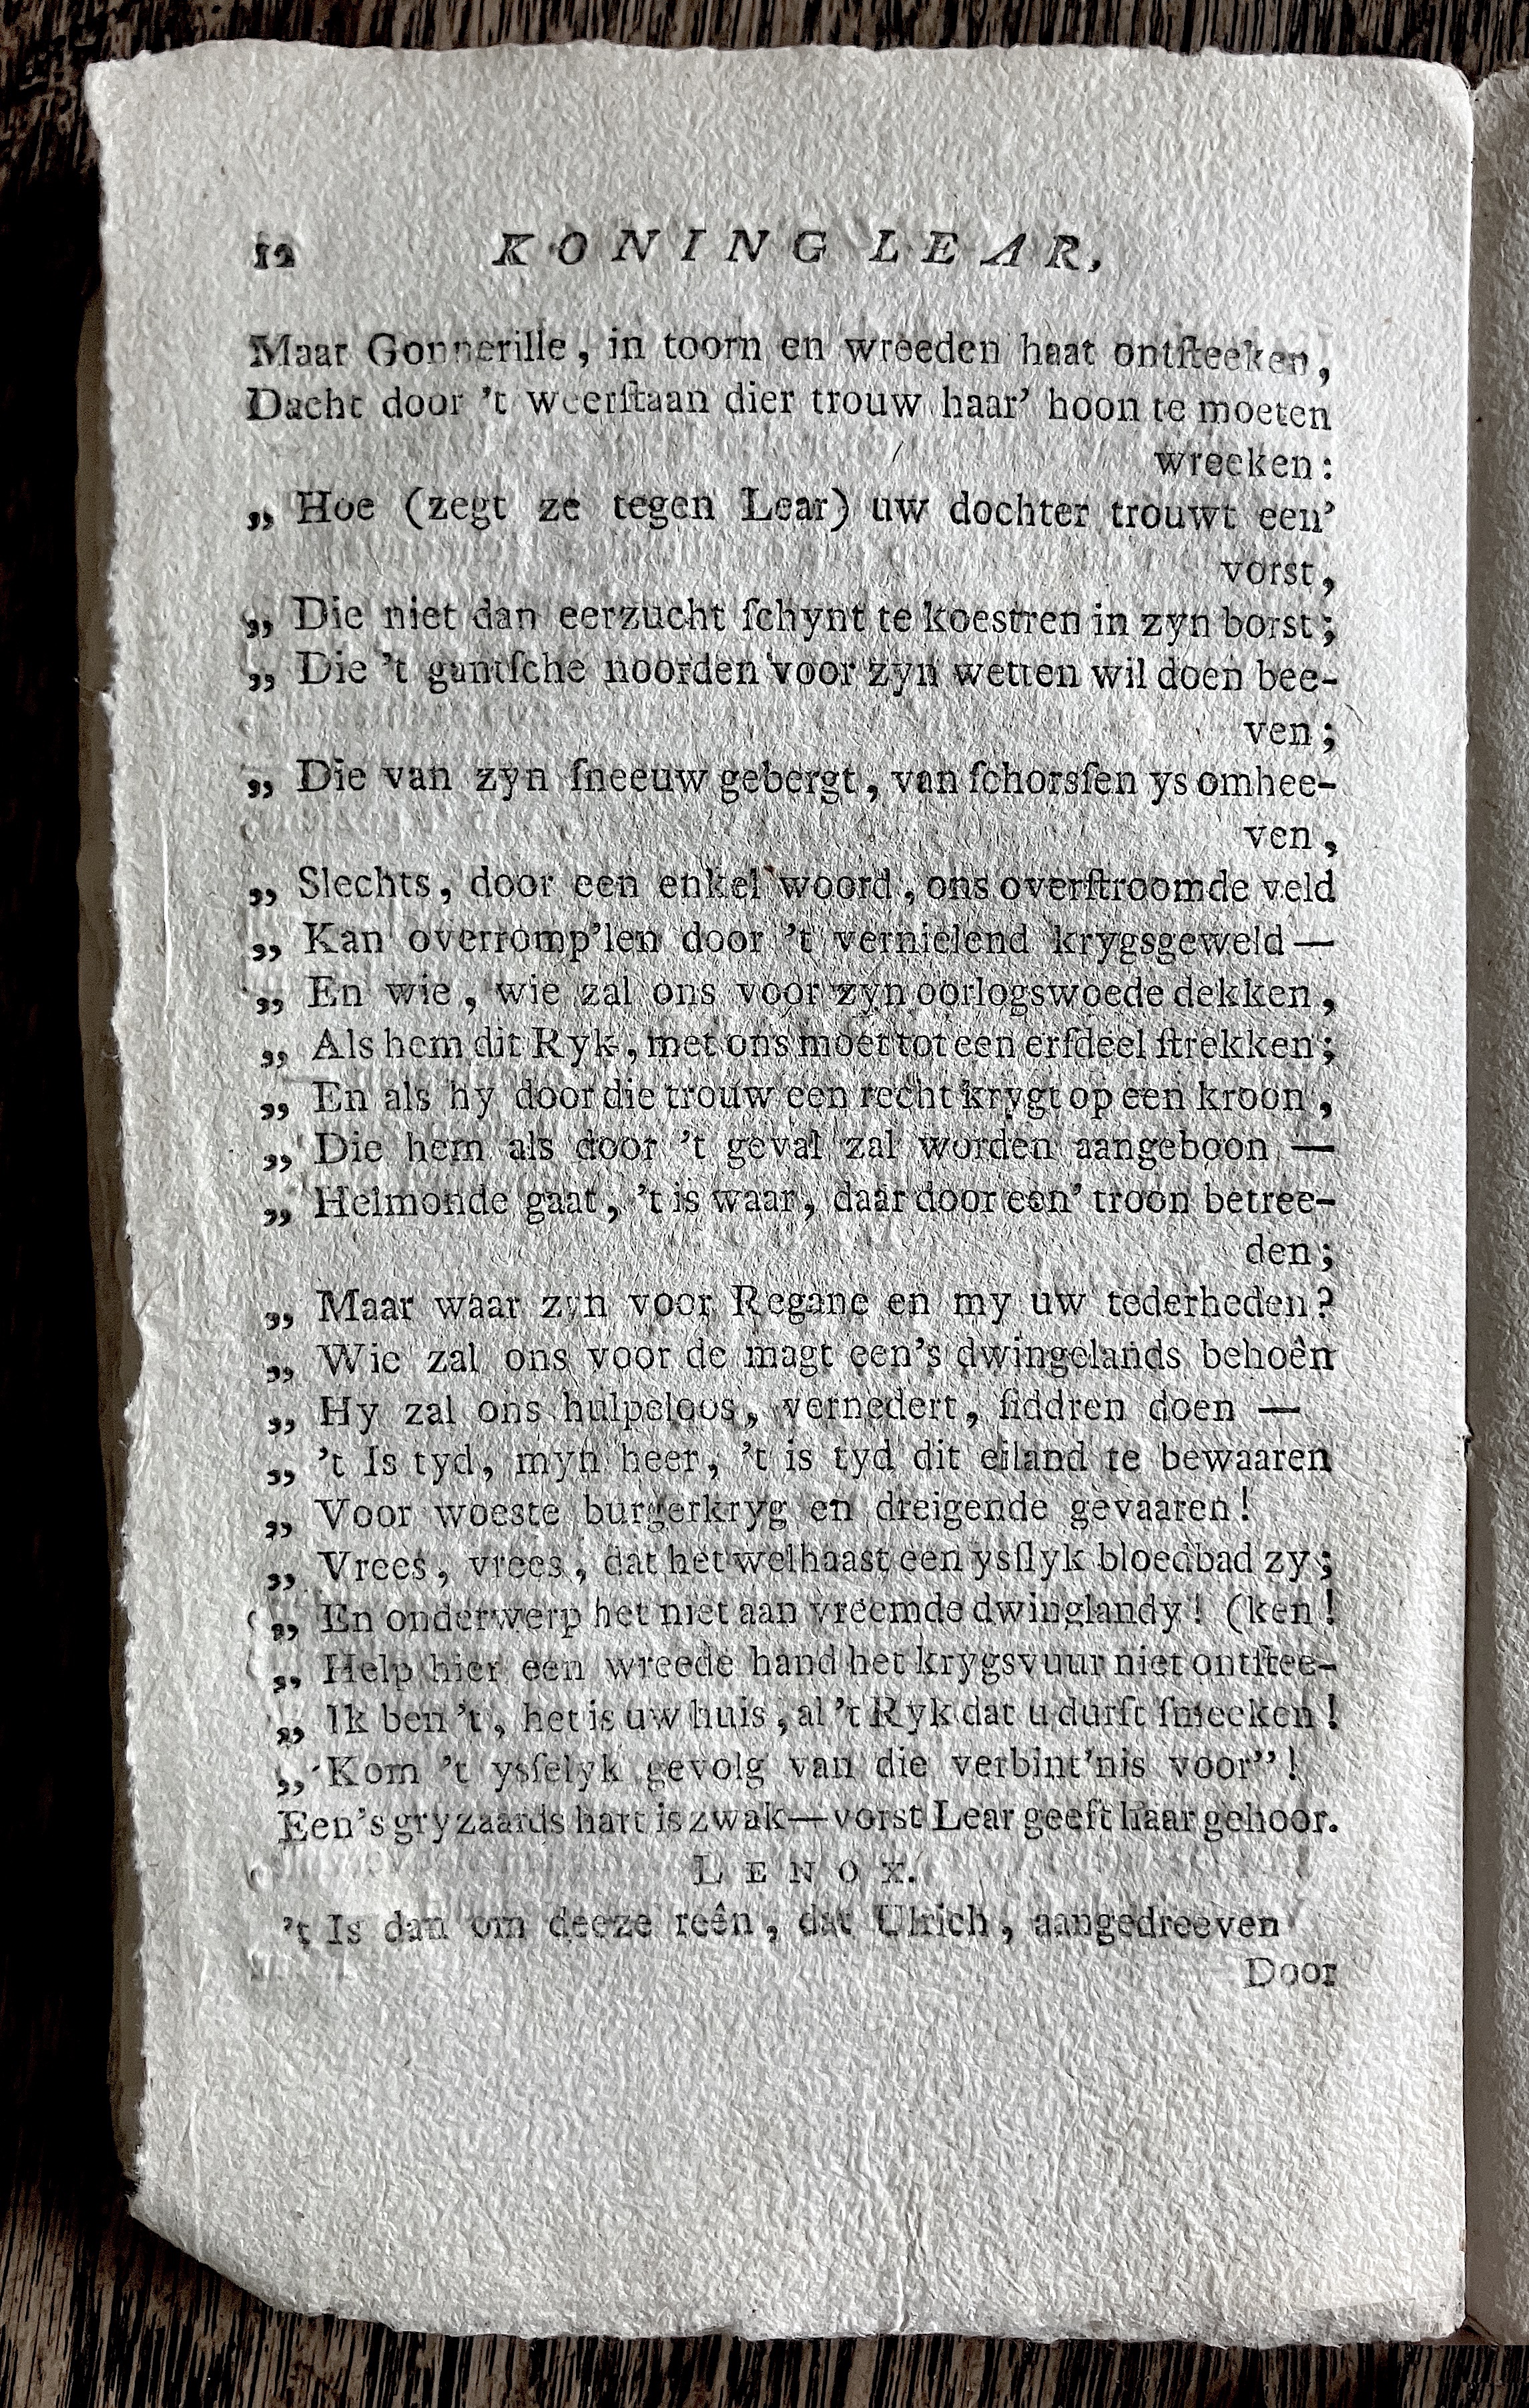 12 KONING LEAR,
Maar Gonnerille, in toorn en wreeden haat ontſteeken,
Dacht door 't weerſtaan dier trouw haar' hoon te moeten
wreeken:
„ Hoe (zegt ze tegen Lear) uw dochter trouwt een'
vorst,
„ Die niet dan eerzucht ſchynt te koestren in zyn borst;
„ Die 't gantſche noorden voor zyn wetten wil doen bee-
ven;
„ Die van zyn ſneeuw gebergt, van ſchorsſen ys omhee-
ven,
„ Slechts, door een enkel woord, ons overſtroomde veld
„ Kan overromp'len door 't vernielend krygsgeweld —
„ En wie, wie zal ons voor zyn oorlogswoede dekken,
„ Als hem dit Ryk, met ons moet tot een erfdeel ſtrekken;
„ En als hy door die trouw een recht krygt op een kroon,
„ Die hem als door 't geval zal worden aangeboon —
„ Helmonde gaat, 't is waar, daar door een' troon betree-
den;
„ Maar waar zyn voor Regane en my uw tederheden?
„ Wie zal ons voor de magt een's dwingelands behoên
„ Hy zal ons hulpeloos, vernedert, ſiddren doen —
„ 't Is tyd, myn heer, 't is tyd dit eiland te bewaaren
„ Voor woeste burgerkryg en dreigende gevaaren!
„ Vrees, vrees, dat het welhaast een ysſlyk bloedbad zy;
„ En onderwerp het niet aan vreemde dwinglandy! (ken!
„ Help hier een wreede hand het krygsvuur niet ontſtee-
„ Ik ben 't, het is uw huis, al 't Ryk dat u durft ſmeeken!
„ Kom 't ysſelyk gevolg van die verbint'nis voor"!
Een's gryzaards hart is zwak—vorst Lear geeft haar gehoor.
LENOX.
't Is dan om deeze reên, dat Ulrich, aangedreeven
Door